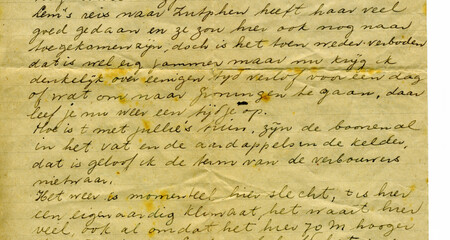 Rem's reis naar Zutphen heeft haar veel
goed gedaan en ze zou hier ook nog naar
toegekomen zijn, doch is het toen weder verboden
dat is wel erg jammer maar nu krijg ik
denkelijk over eenigen tijd verlof voor een dag
of wat om naar Groningen te gaan, daar
leef je nu weer een tijdje op.
Hoe is t met jullie's tuin, zijn de boonen al
in het vat en de aardappels in de kelder,
dat is geloof ik de term van de verbouwers
nietwaar.
Het weer is momenteel hier slecht, t is hier
een eigenaardig klimaat, het waait hier
veel, ook al omdat het hier 70 M. hooger